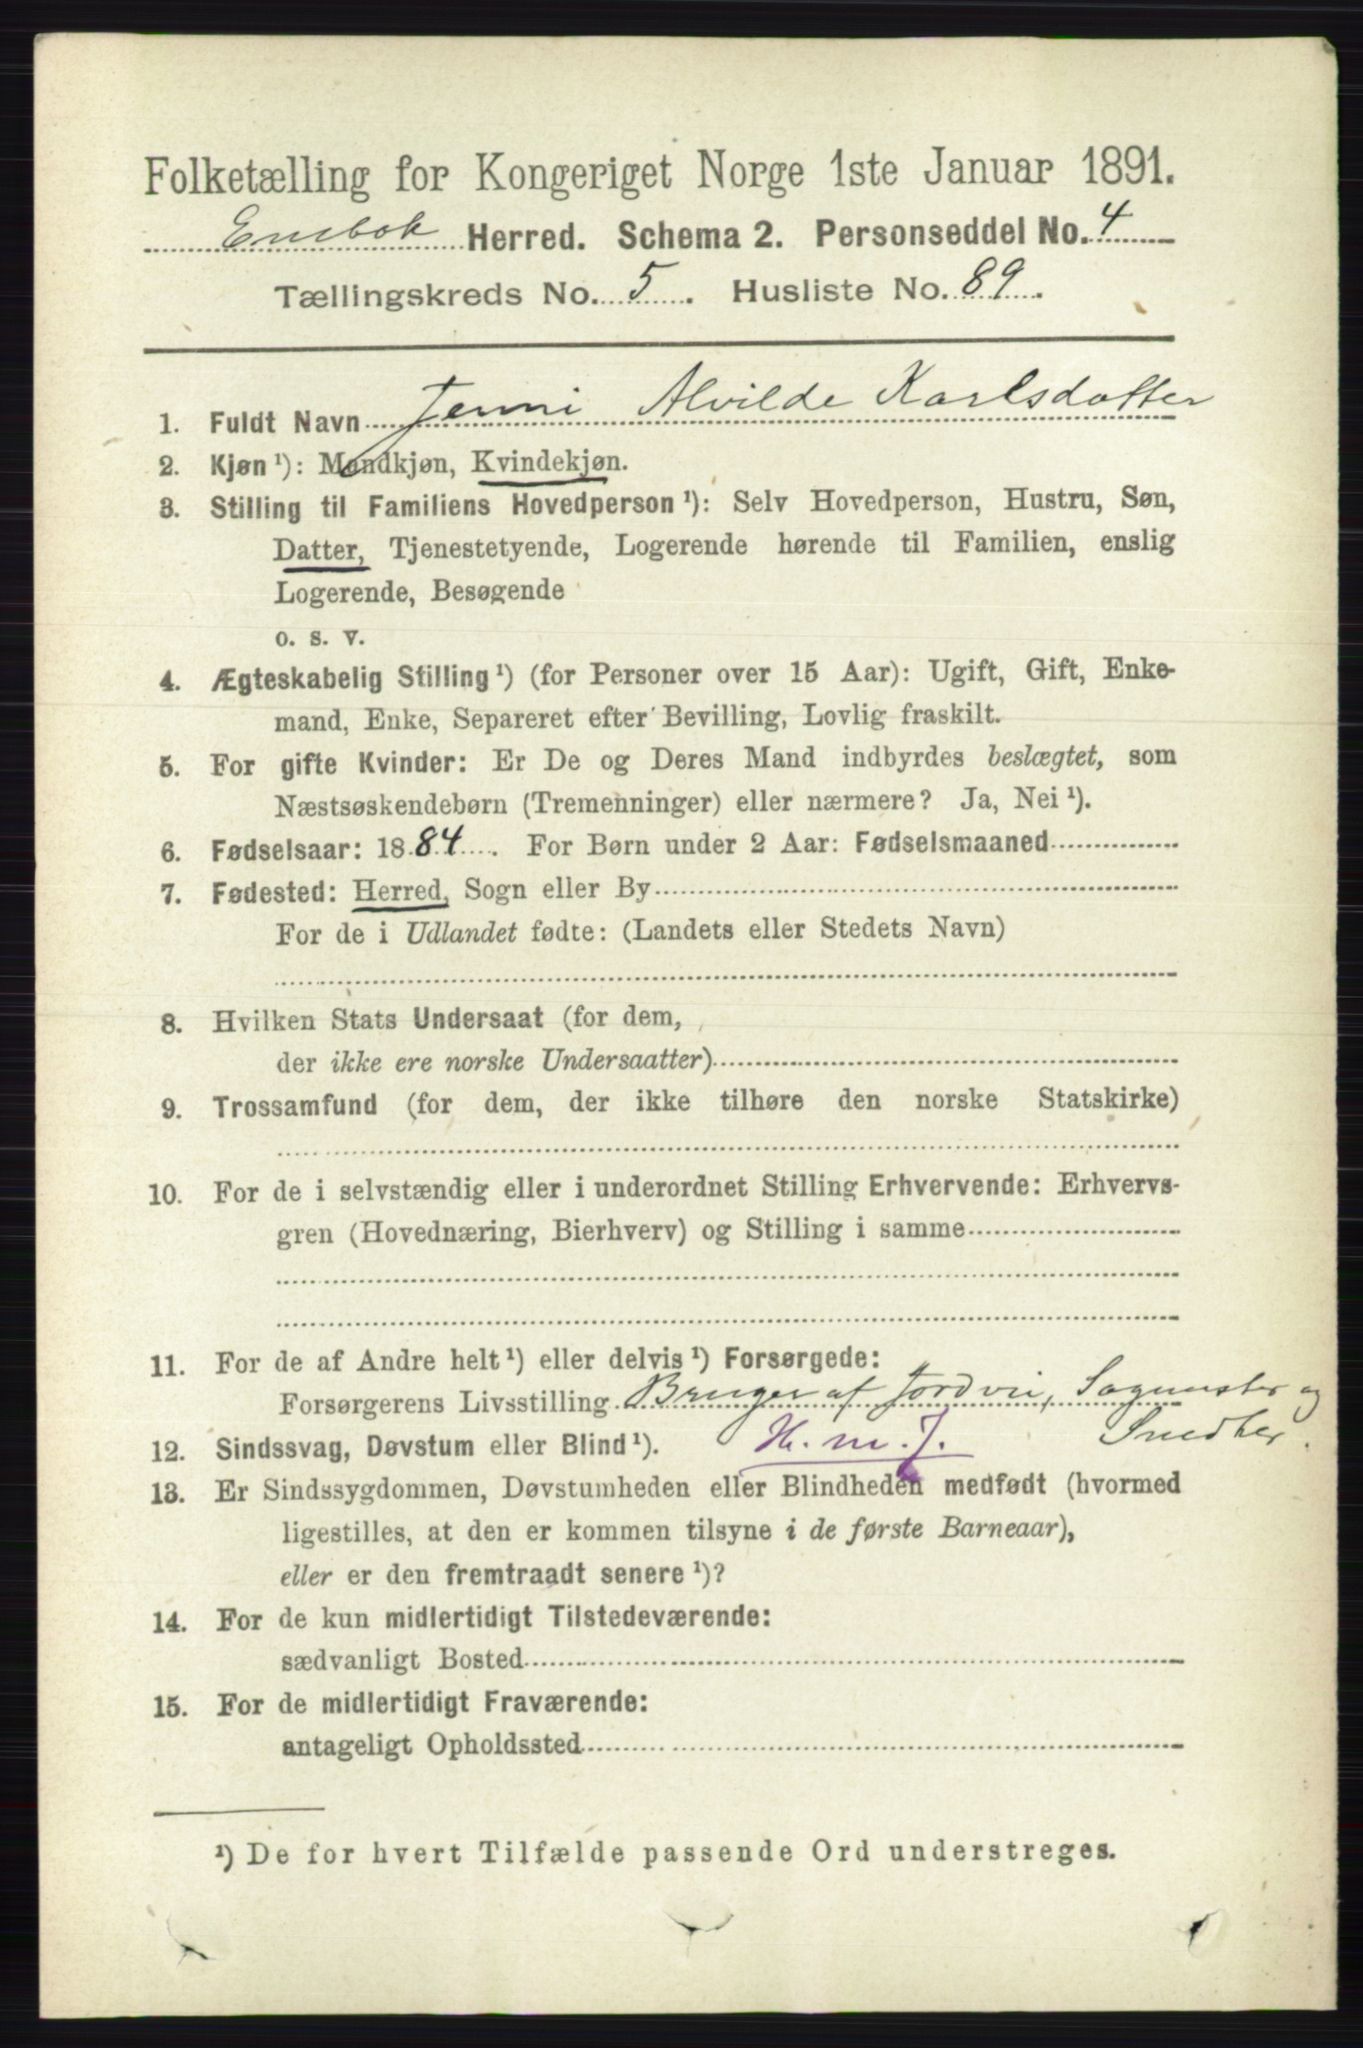 Folketælling for Kongeriget Norge 1ste Januar 1891.
Enebok Herred. Schema 2. Personseddel No. 4
Tællingskreds No. 5. Husliste No. 89.
1. Fuldt Navn Jenni Alvilde Karlsdatter
2. Kjøn¹): Mandkjøn, Kvindekjøn.
3. Stilling til Familiens Hovedperson¹): Selv Hovedperson, Hustru, Søn,
Datter, Tjenestetyende, Logerende hørende til Familien, enslig
Logerende, Besøgende
o. s. v.
4. Ægteskabelig Stilling¹) (for Personer over 15 Aar): Ugift, Gift, Enke-
mand, Enke, Separeret efter Bevilling, Lovlig fraskilt.
5. For gifte Kvinder: Er De og Deres Mand indbyrdes beslægtet, som
Næstsøskendebørn (Tremenninger) eller nærmere? Ja, Nei¹).
6. Fødselsaar: 1884. For Børn under 2 Aar: Fødselsmaaned
7. Fødested: Herred, Sogn eller By
For de i Udlandet fødte: (Landets eller Stedets Navn)
8. Hvilken Stats Undersaat (for dem,
der ikke ere norske Undersaatter)
9. Trossamfund (for dem, der ikke tilhøre den norske Statskirke)
10. For de i selvstændig eller i underordnet Stilling Erhvervende: Erhvervs-
gren (Hovednæring, Bierhverv) og Stilling i samme
11. For de af Andre helt¹) eller delvis¹) Forsørgede:
Forsørgerens Livsstilling Bruger af Jordvei, Sagmester og
Snedker.
12. Sindssvag, Døvstum eller Blind¹). H. m. J.
13. Er Sindssygdommen, Døvstumheden eller Blindheden medfødt (hvormed
ligestilles, at den er kommen tilsyne i de første Barneaar),
eller er den fremtraadt senere¹)?
14. For de kun midlertidigt Tilstedeværende:
sædvanligt Bosted
15. For de midlertidigt Fraværende:
antageligt Opholdssted
¹) De for hvert Tilfælde passende Ord understreges.